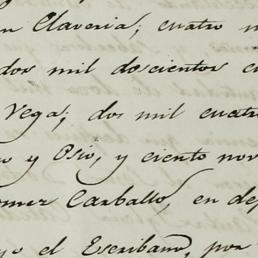 n Claveria; cuatro m
dos mil doscientos c
Vega; dos mil cuatr
o y Osio, y ciento nov
omer Carballo, en de
yo el Escribano, por